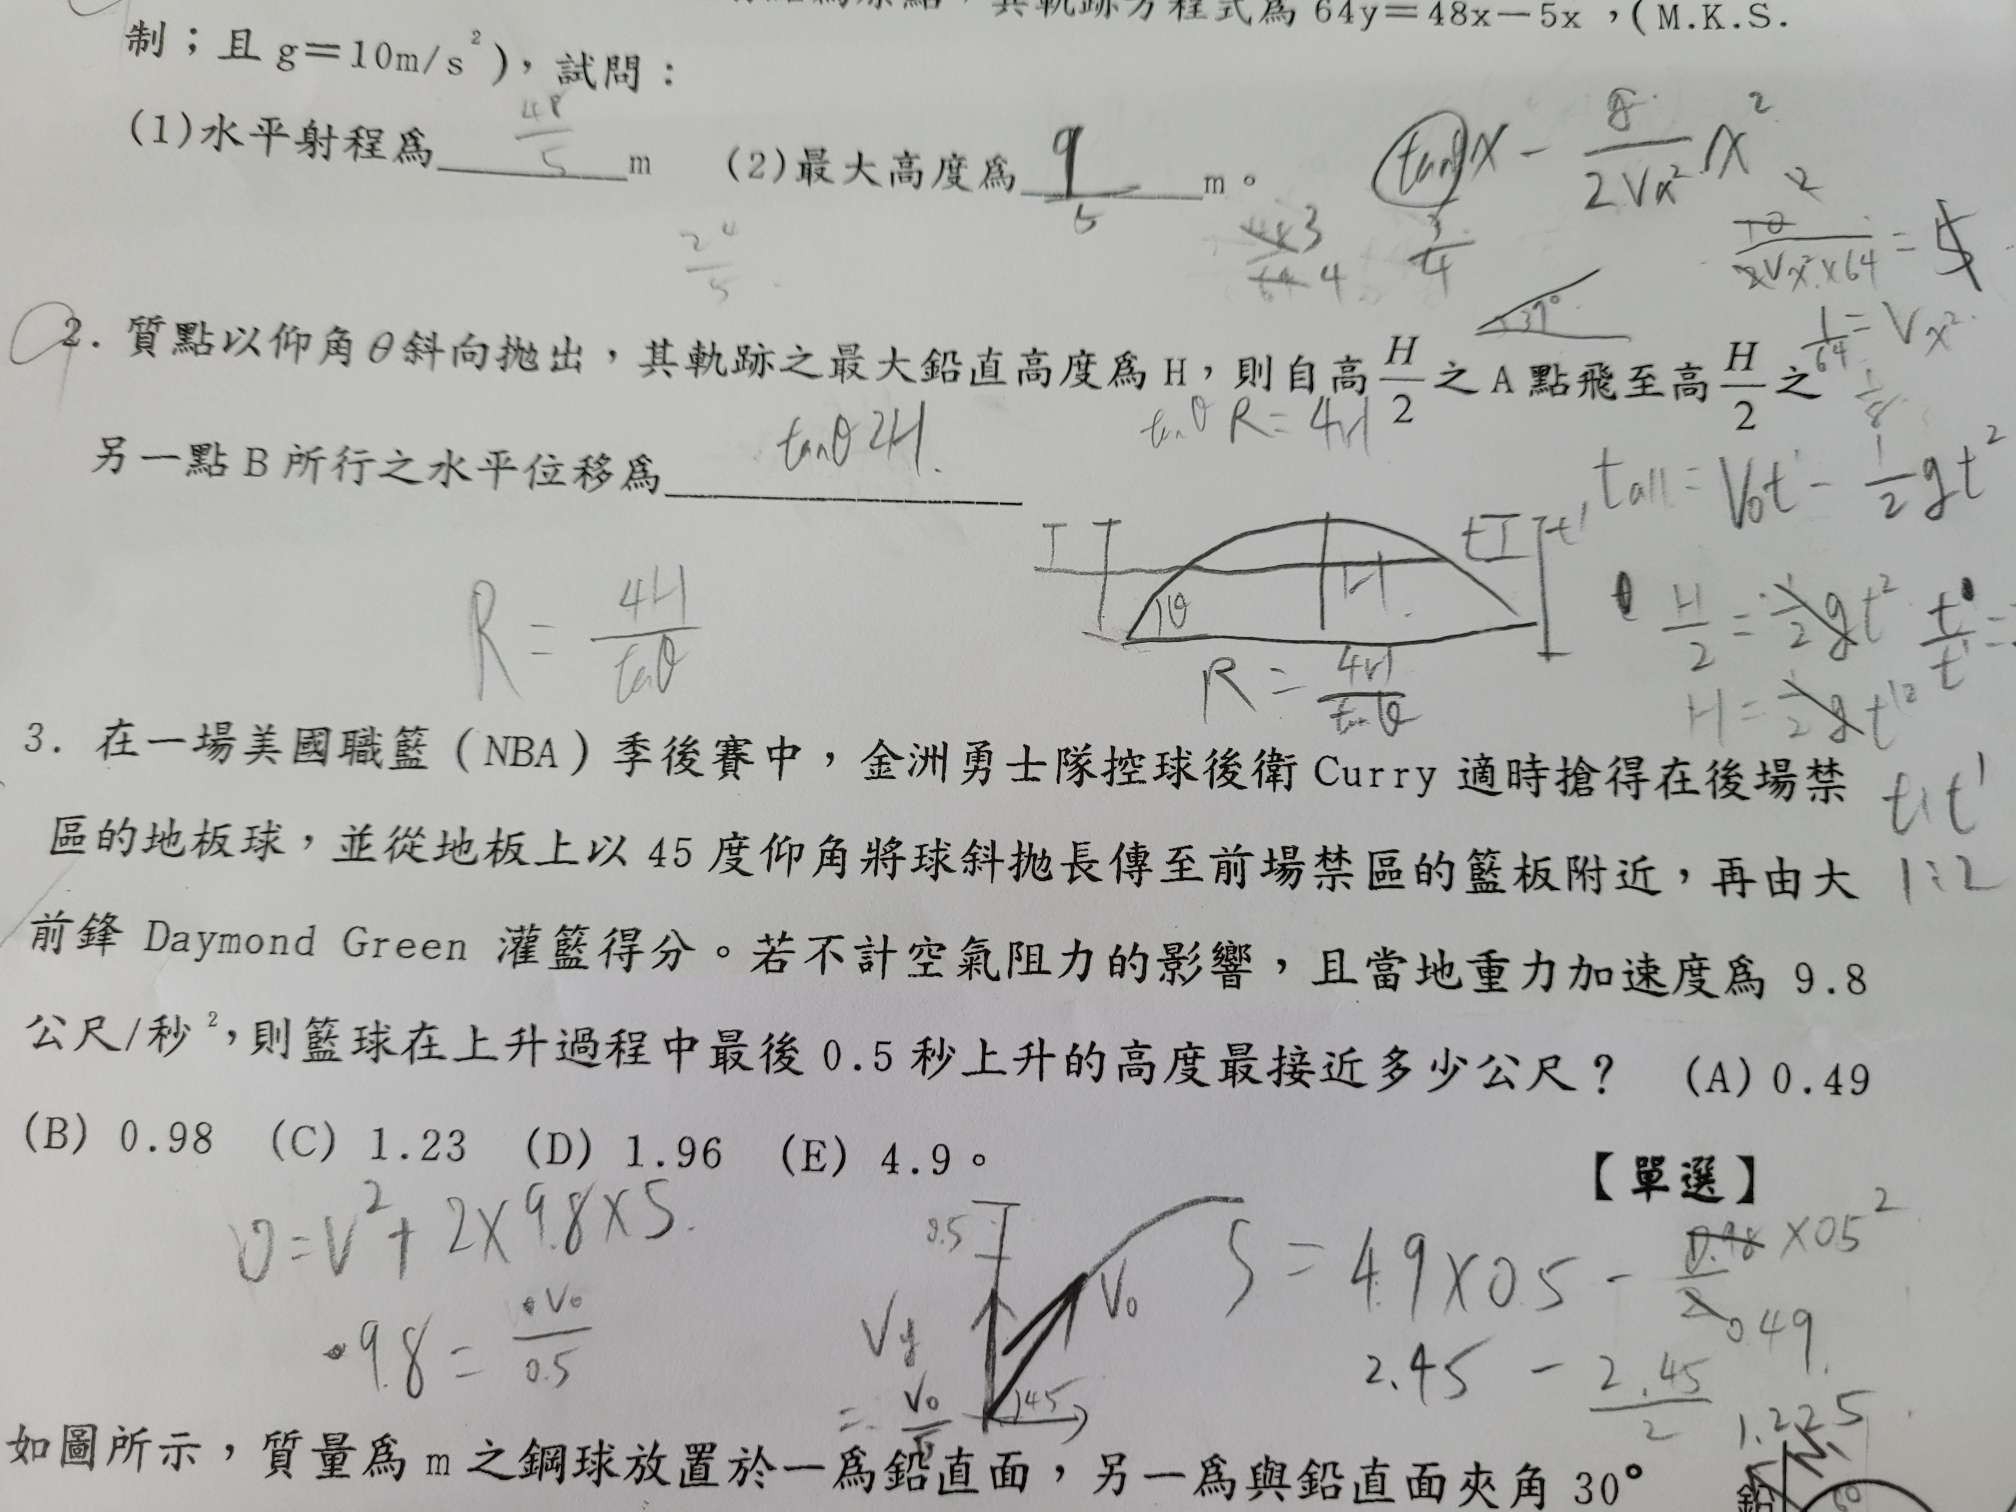 其軌跡方程式為 64y=48x-5x ,(M.K.S.
制；且 g=10m/s²)，試問：
(1)水平射程為 48/5 m (2)最大高度為 9/5 m。
tanθ x - g/2Vx² x²
24/5
48/64 3/4
3/4
10/2Vx²×64 = 5
37°
1/64 = Vx²
1/8
2. 質點以仰角θ斜向拋出，其軌跡之最大鉛直高度為 H，則自高 H/2 之 A 點飛至高 H/2 之
tanθ R = 4H
另一點 B 所行之水平位移為 tanθ 2H
t all = V₀t - 1/2 gt²
R = 4H/tanθ
θ H
R = 4H/tanθ
H/2 = 1/2 gt²
H = 1/2 gt'²
t:t'
1:2
3. 在一場美國職籃（NBA）季後賽中，金洲勇士隊控球後衛 Curry 適時搶得在後場禁
區的地板球，並從地板上以 45 度仰角將球斜拋長傳至前場禁區的籃板附近，再由大
前鋒 Daymond Green 灌籃得分。若不計空氣阻力的影響，且當地重力加速度為 9.8
公尺/秒²，則籃球在上升過程中最後 0.5 秒上升的高度最接近多少公尺？ (A) 0.49
(B) 0.98 (C) 1.23 (D) 1.96 (E) 4.9。
【單選】
0 = V² + 2×9.8×5
9.8 = V₀/0.5
0.5
Vy
V₀
45
S = 4.9×0.5 - ×0.5²
0.49
2.45 - 2.45/2
1.225
如圖所示，質量為 m 之鋼球放置於一為鉛直面，另一為與鉛直面夾角 30°
鉛